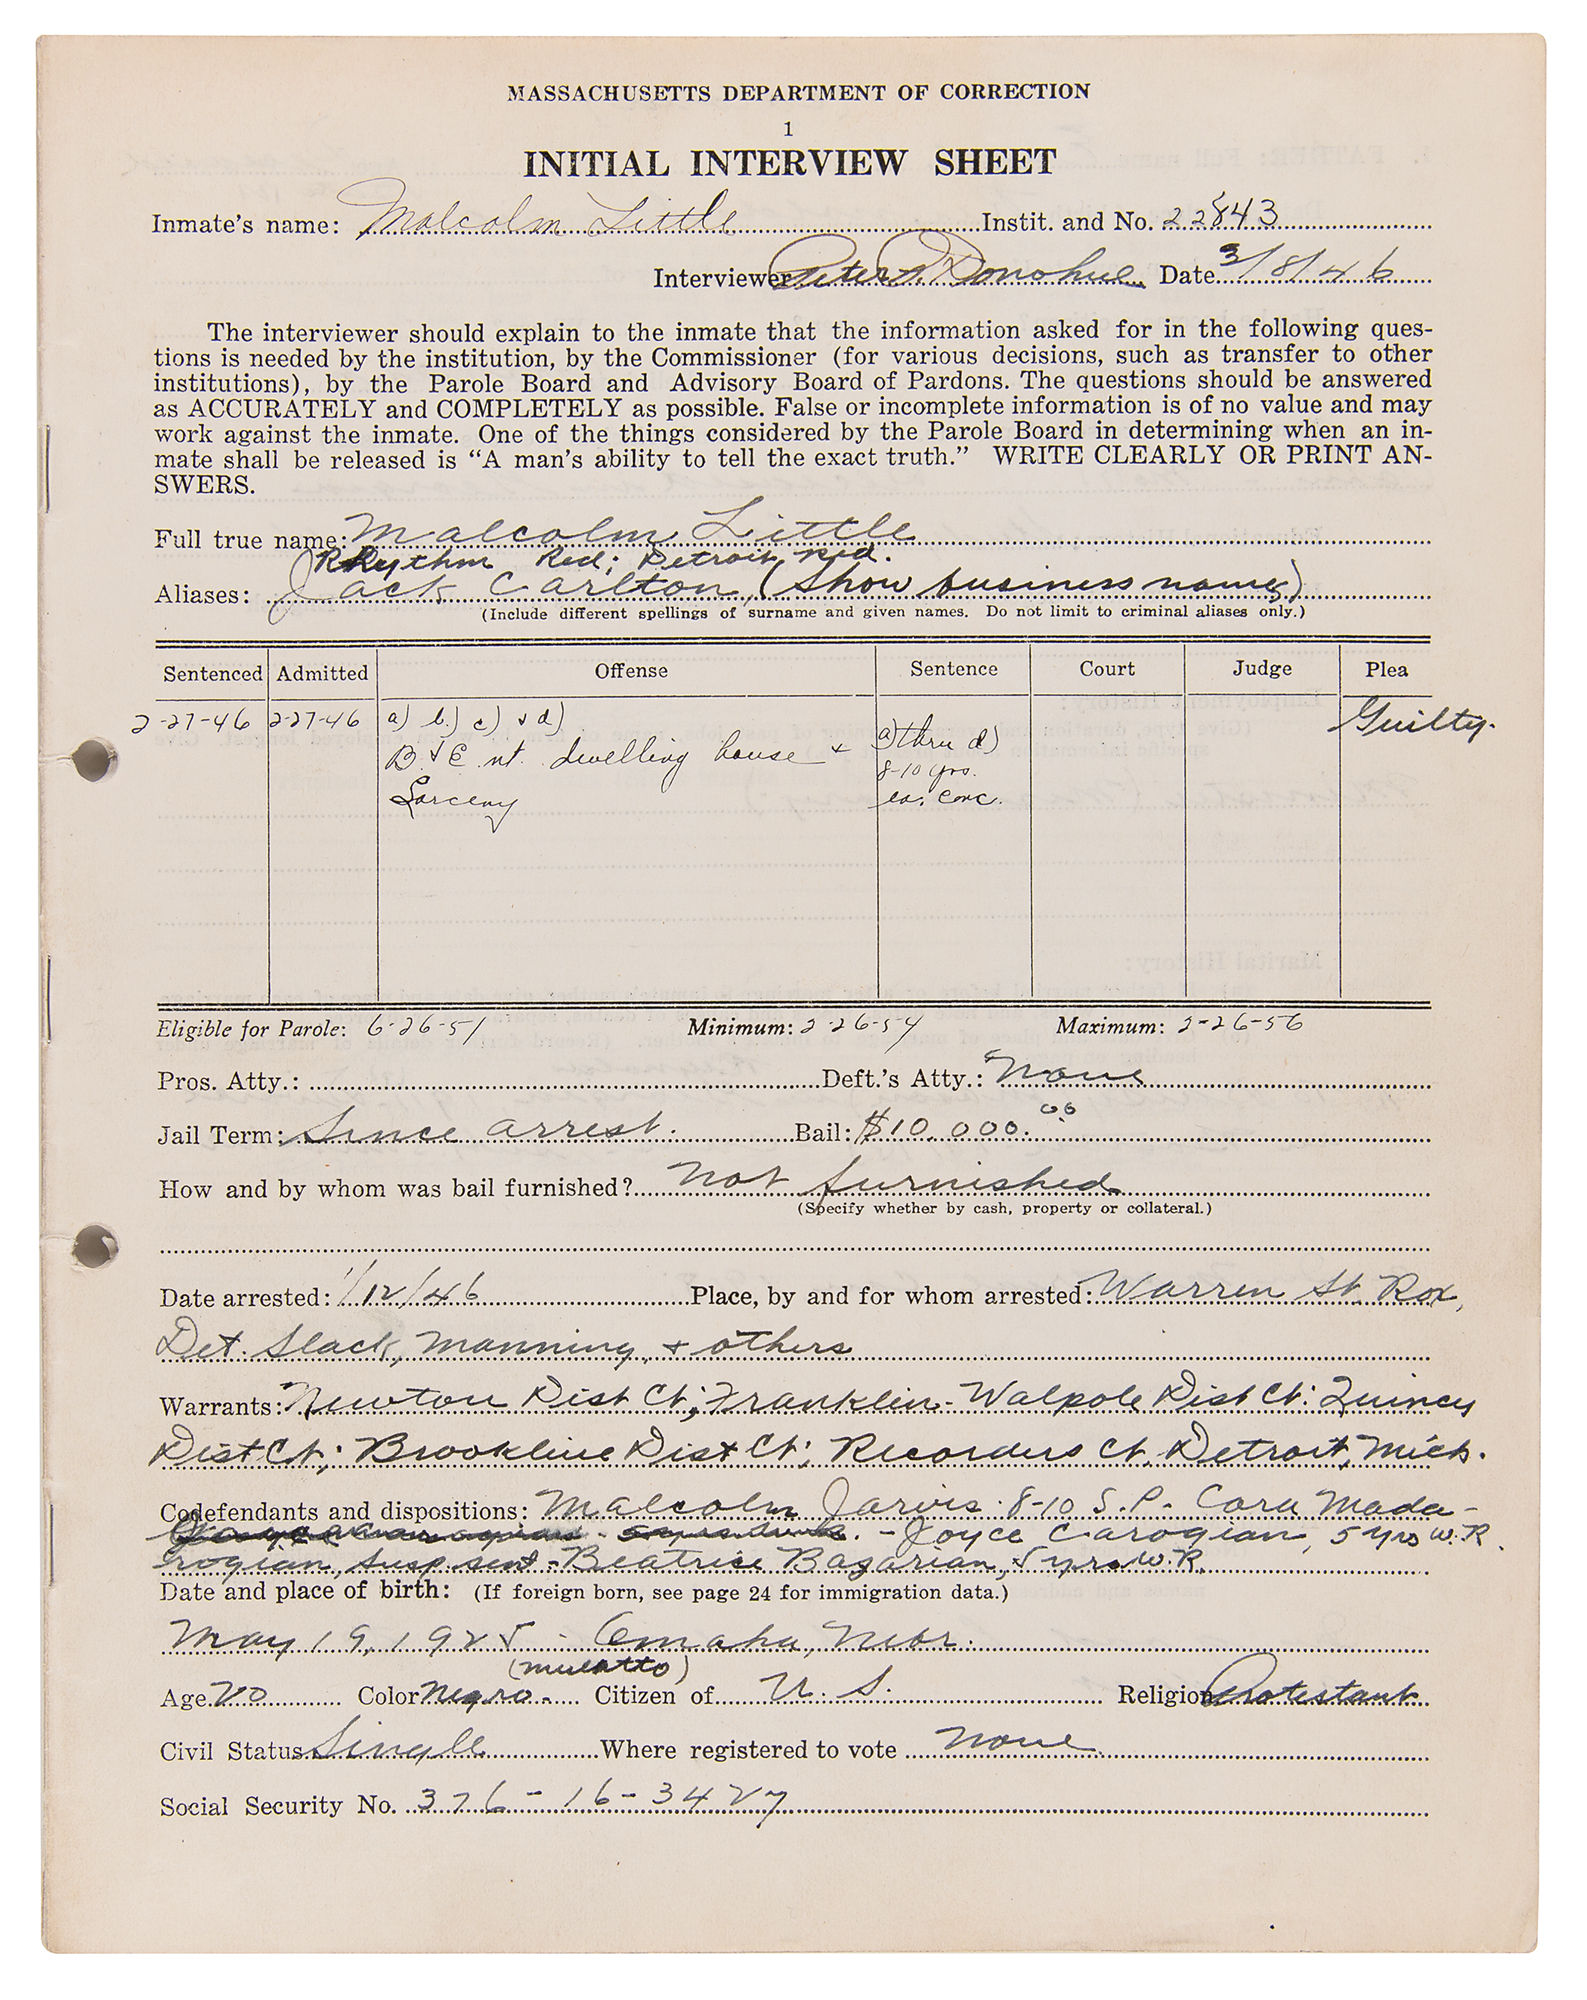 MASSACHUSETTS DEPARTMENT OF CORRECTION
1
INITIAL INTERVIEW SHEET
Inmate's name: Malcolm Little Instit. and No. 22843
Interviewer Peter J. Donohue Date 3/8/46
The interviewer should explain to the inmate that the information asked for in the following ques-
tions is needed by the institution, by the Commissioner (for various decisions, such as transfer to other
institutions), by the Parole Board and Advisory Board of Pardons. The questions should be answered
as ACCURATELY and COMPLETELY as possible. False or incomplete information is of no value and may
work against the inmate. One of the things considered by the Parole Board in determining when an in-
mate shall be released is “A man's ability to tell the exact truth.” WRITE CLEARLY OR PRINT AN-
SWERS.
Full true name: Malcolm Little
Rhythm Red; Detroit Red.
Aliases: Jack Carlton (Show business names)
(Include different spellings of surname and given names. Do not limit to criminal aliases only.)
Sentenced Admitted Offense Sentence Court Judge Plea
2-27-46 2-27-46 a) b) c) & d) a) thru d) Guilty.
B & E nt. dwelling house & 8-10 yrs.
Larceny ea. conc.
Eligible for Parole: 6-26-51 Minimum: 2-26-54 Maximum: 2-26-56
Pros. Atty.: Deft.'s Atty.: None
Jail Term: Since arrest. Bail: $10,000.00
How and by whom was bail furnished? Not furnished
(Specify whether by cash, property or collateral.)
Date arrested: 1/12/46 Place, by and for whom arrested: Warren St. Rox,
Det. Slack, Manning, & others
Warrants: Newton Dist Ct; Franklin-Walpole Dist Ct; Quincy
Dist Ct; Brookline Dist Ct; Recorders Ct, Detroit, Mich.
Codefendants and dispositions: Malcolm Jarvis 8-10 S.P. Cora Mada-
- Joyce Carogian, 5 yrs W.R.
rogian, susp sent - Beatrice Bazarian, 5 yrs W.R.
Date and place of birth: (If foreign born, see page 24 for immigration data.)
May 19, 1925 - Omaha, Nebr.
(mulatto)
Age 20 Color Negro - Citizen of U. S. Religion Protestant
Civil Status Single Where registered to vote None
Social Security No. 376-16-3427